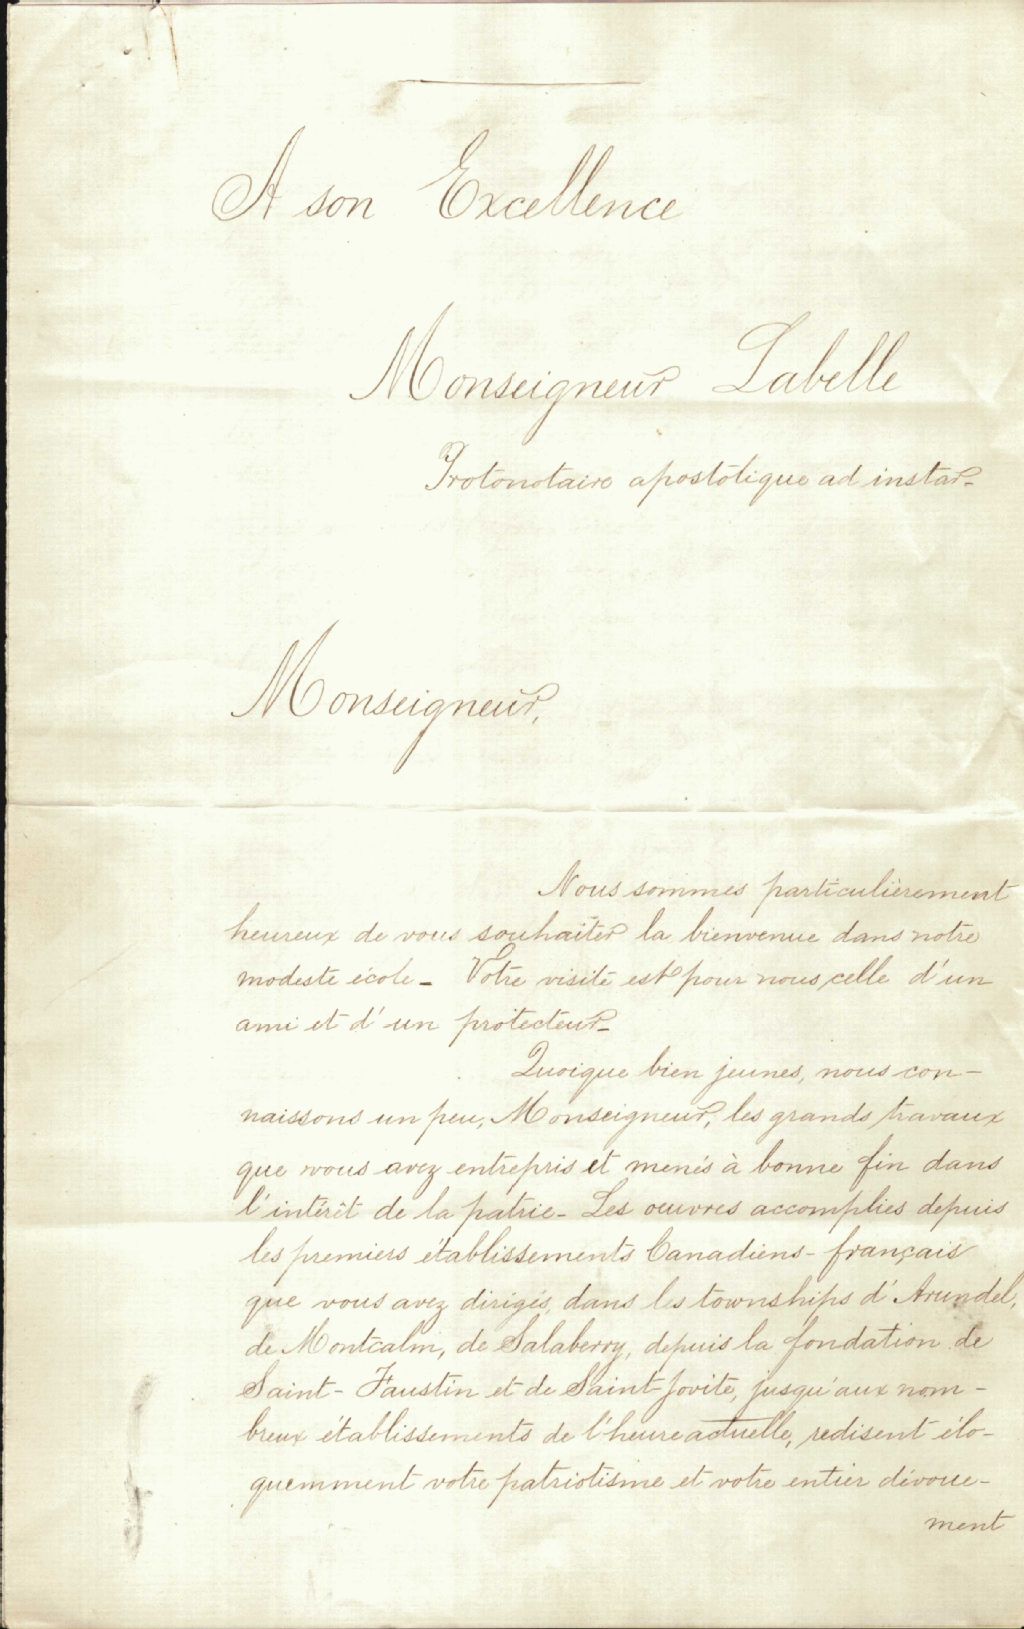 A son Excellence
Monseigneur Labelle
Protonotaire apostolique ad instar_
Monseigneur,
Nous sommes particulièrement
heureux de vous souhaiter la bienvenue dans notre
modeste école_ Votre visite est pour nous celle d'un
ami et d'un protecteur_
Quoique bien jeunes, nous con-
naissons un peu, Monseigneur, les grands travaux
que vous avez entrepris et menés à bonne fin dans
l'intérêt de la patrie_ Les œuvres accomplies depuis
les premiers établissements Canadiens-français
que vous avez dirigés, dans les townships d'Arundel,
de Montcalm, de Salaberry, depuis la fondation de
Saint-Faustin et de Saint-Jovite, jusqu'aux nom-
breux établissements de l'heure actuelle, redisent élo-
quemment votre patriotisme et votre entier dévoue-
ment